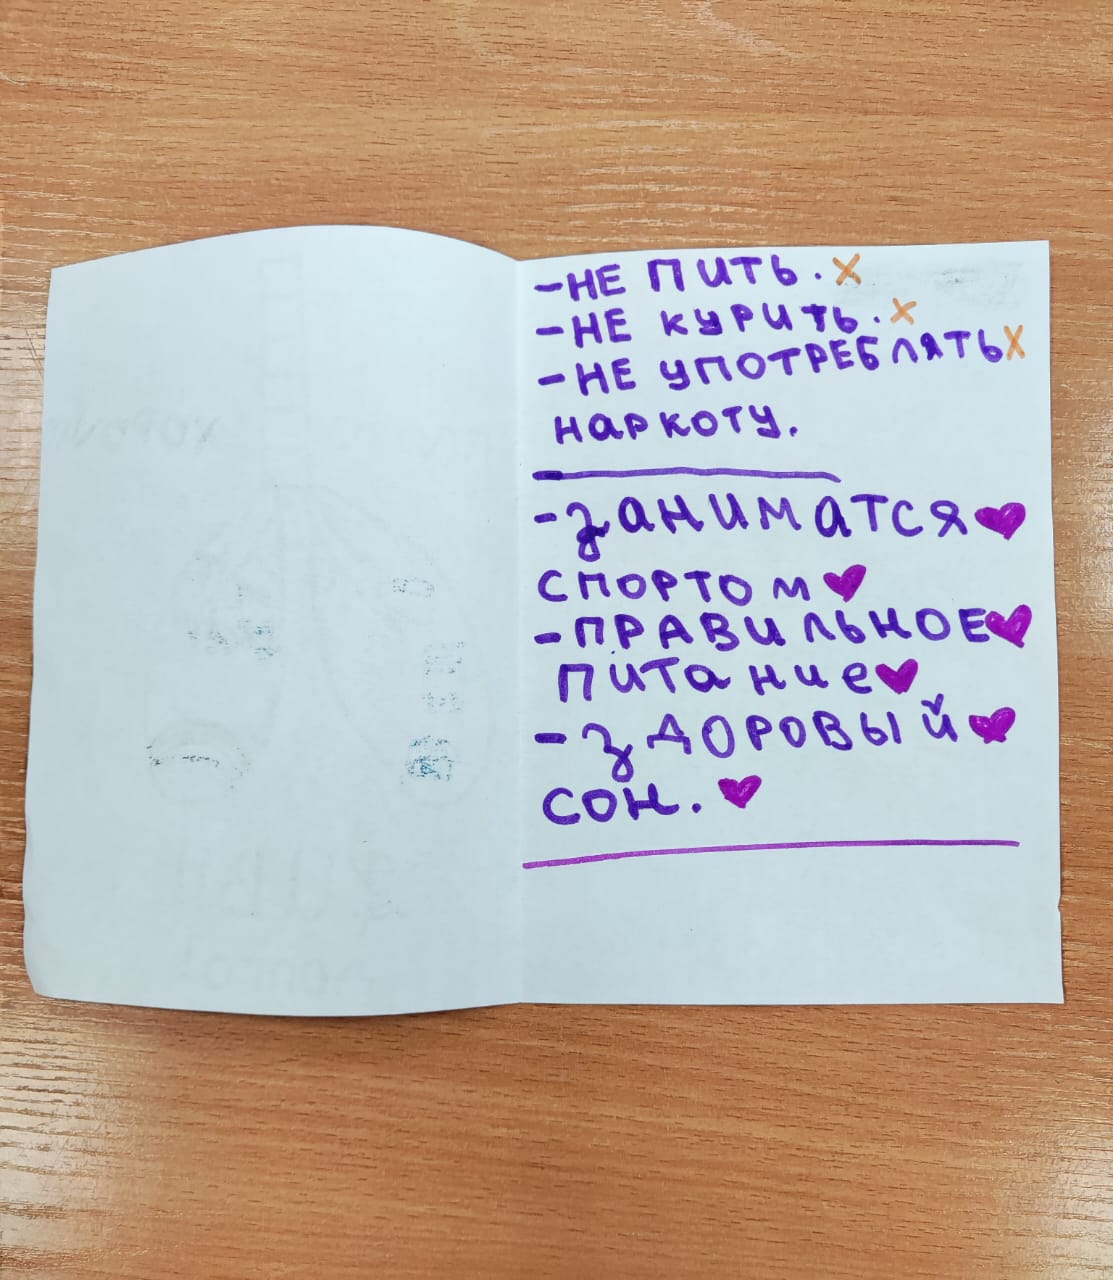 -НЕ ПИТЬ. х
-НЕ КУРИТЬ. х
-НЕ УПОТРЕБЛЯТЬ х
НАРКОТУ.
-ЗАНИМАТСЯ
СПОРТОМ
-ПРАВИЛЬНОЕ
ПИТАНИЕ
-ЗДОРОВЫЙ
СОН.